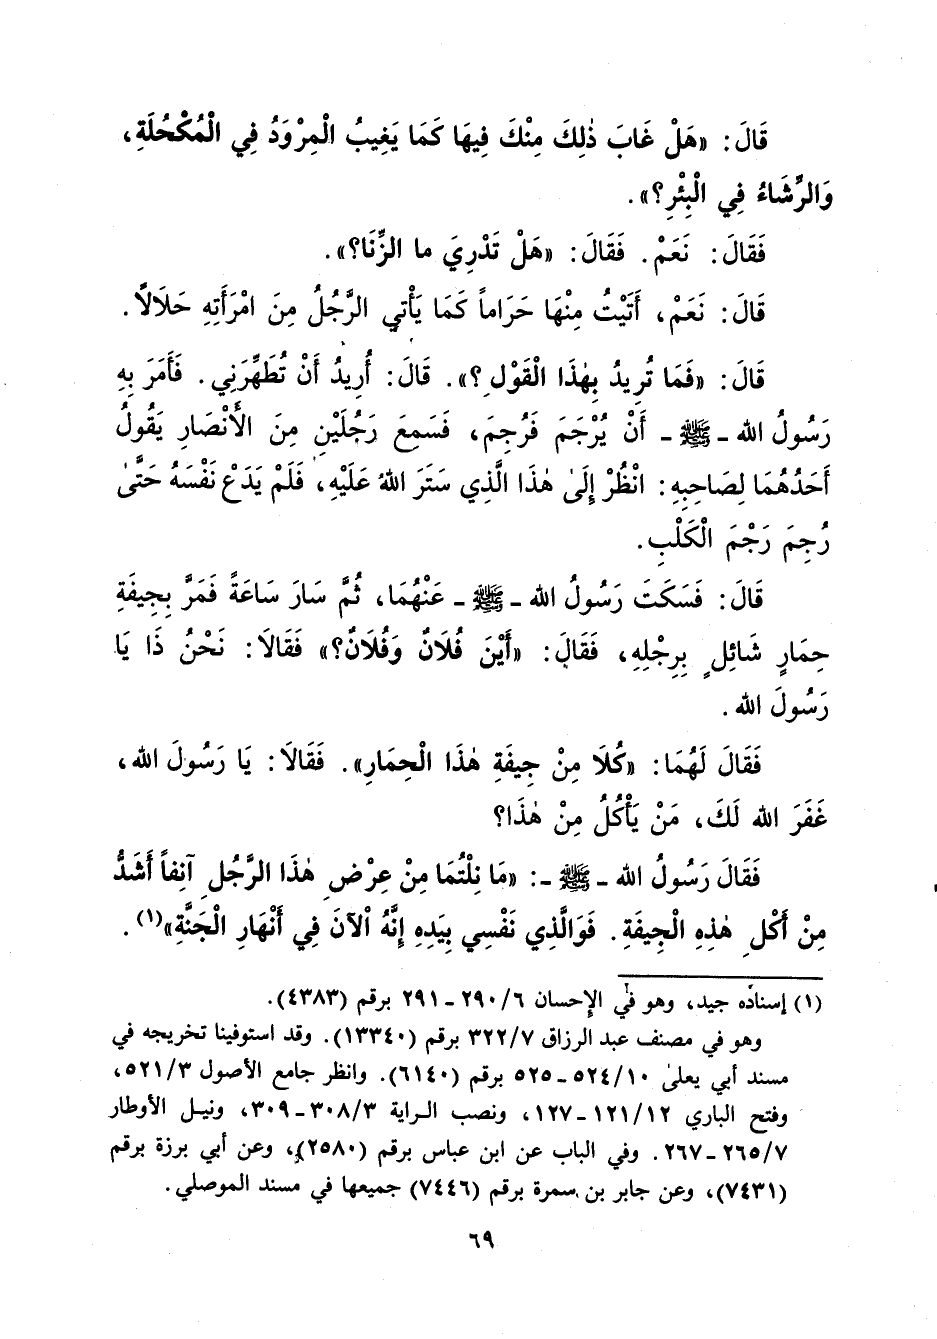 قَالَ: «هَلْ غَابَ ذٰلِكَ مِنْكَ فِيهَا كَمَا يَغِيبُ الْمِرْوَدُ فِي الْمُكْحُلَةِ،
وَالرِّشَاءُ فِي الْبِئْرِ؟».
فَقَالَ: نَعَمْ. فَقَالَ: «هَلْ تَدْرِيَ ما الزِّنَا؟».
قَالَ: نَعَمْ، أَتَيْتُ مِنْهَا حَرَاماً كَمَا يَأْتي الرَّجُلُ مِنَ امْرَأَتِهِ حَلَالاً.
قَالَ: «فَمَا تُرِيدُ بِهٰذَا الْقَوْلِ؟». قَالَ: أُرِيدُ أَنْ تُطَهِّرَنِي. فَأَمَرَ بِهِ
رَسُولُ الله ـ ﷺ ـ أَنْ يُرْجَمَ فَرُجِمَ، فَسَمِعَ رَجُلَيْنِ مِنَ الأَنْصَارِ يَقُولُ
أَحَدُهُمَا لِصَاحِبِهِ: انْظُرْ إِلَىٰ هٰذَا الَّذِي سَتَرَ اللهُ عَلَيْهِ، فَلَمْ يَدَعْ نَفْسَهُ حَتَّىٰ
رُجِمَ رَجْمَ الْكَلْبِ.
قَالَ: فَسَكَتَ رَسُولُ الله ـ ﷺ ـ عَنْهُمَا، ثُمَّ سَارَ سَاعَةً فَمَرَّ بِجِيفَةِ
حِمَارٍ شَائِلٍ بِرِجْلِهِ، فَقَالَ: «أَيْنَ فُلَانٌ وَفُلَانٌ؟» فَقَالَا: نَحْنُ ذَا يَا
رَسُولَ الله.
فَقَالَ لَهُمَا: «كُلَا مِنْ جِيفَةِ هٰذَا الْحِمَارِ». فَقَالَا: يَا رَسُولَ الله،
غَفَرَ الله لَكَ، مَنْ يَأْكُلُ مِنْ هٰذَا؟
فَقَالَ رَسُولُ الله ـ ﷺ ـ: «مَا نِلْتُمَا مِنْ عِرْضِ هٰذَا الرَّجُلِ آنِفاً أَشَدُّ
مِنْ أَكْلِ هٰذِهِ الْجِيفَةِ. فَوَالَّذِي نَفْسِي بِيَدِهِ إِنَّهُ الْآنَ فِي أَنْهَارِ الْجَنَّةِ»(١).
(١) إسناده جيد، وهو في الإحسان ٢٩٠/٦ - ٢٩١ برقم (٤٣٨٣).
وهو في مصنف عبد الرزاق ٣٢٢/٧ برقم (١٣٣٤٠). وقد استوفينا تخريجه في
مسند أبي يعلىٰ ٥٢٤/١٠ - ٥٢٥ برقم (٦١٤٠). وانظر جامع الأصول ٥٢١/٣،
وفتح الباري ١٢١/١٢ - ١٢٧، ونصب الراية ٣٠٨/٣ - ٣٠٩، ونيل الأوطار
٢٦٥/٧ - ٢٦٧. وفي الباب عن ابن عباس برقم (٢٥٨٠)، وعن أبي برزة برقم
(٧٤٣١)، وعن جابر بن سمرة برقم (٧٤٤٦) جميعها في مسند الموصلي.
٦٩